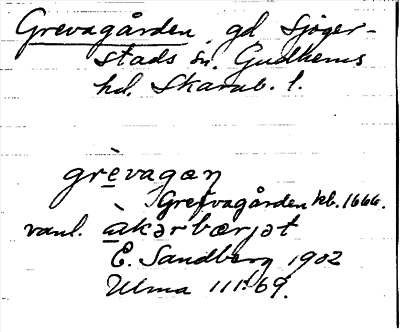 Grevagården, gd Sjöger-
stads sn. Gudhems
hd. Skarab. l.
grèvagan
Grefvagården kb. 1666.
vanl. àkarbærjat
E. Sandberg 1902
Ulma 111:69.